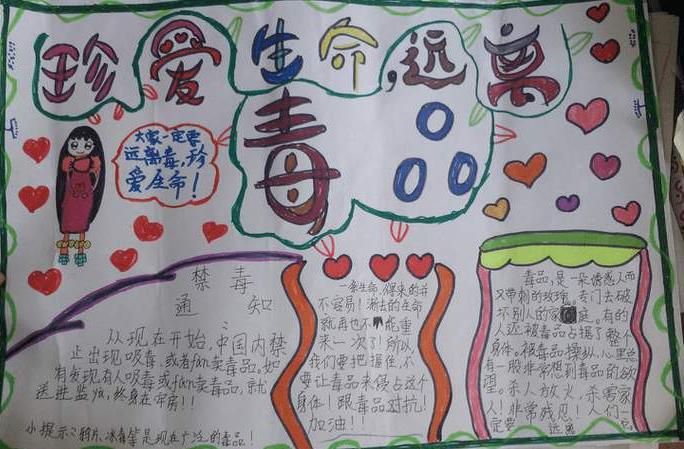 珍爱生命,远离
毒品
大家一定要
远离毒,珍
爱生命!
禁毒
通知
从现在开始,中国内禁
止出现吸毒,或者fan卖毒品。如
有发现有人吸毒或fan卖毒品,就
送进监yu,终身在牢房!!
小提示:鸦片、冰毒等是现在广泛的毒品!
一条生命,得来的并
不容易!渐去的生命
就再也不能重
来一次了!所以
我们要把握住,不
要让毒品来侵占这个
身体!跟毒品对抗!
加油!!
毒品,是一朵诱惑人而
又带刺的玫瑰。专门去破
坏别人的家庭。有的
人还被毒品占据了整个
身体。被毒品操纵,心里总
有一股非常想到毒品的欲
望。杀人放火,杀害家
人!非常残忍!人们一
定要远